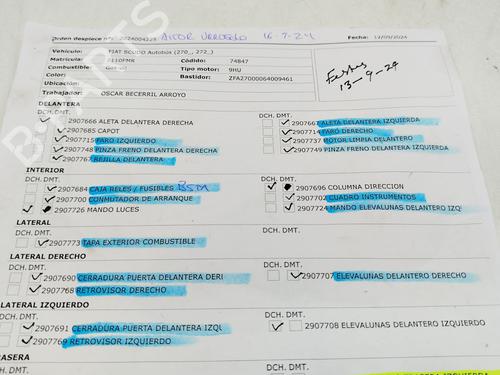 Orden despiece nº: 2024004223 AITOR URROSOLO 16-7-24 Fecha: 12/09/2024
Vehículo: FIAT SCUDO Autobús (270_, 272_)
Matrícula: 8110FMR Código: 74847
Combustible: Gasoil Tipo motor: 9HU
Color: Bastidor: ZFA27000064009461
Ubicación:
Trabajador: OSCAR BECERRIL ARROYO
13-9-24
DELANTERA
DCH. DMT.
2907666 ALETA DELANTERA DERECHA
2907685 CAPOT
2907715 FARO IZQUIERDO
2907748 PINZA FRENO DELANTERA DERECHA
2907767 REJILLA DELANTERA
DCH. DMT.
2907667 ALETA DELANTERA IZQUIERDA
2907714 FARO DERECHO
2907737 MOTOR LIMPIA DELANTERO
2907749 PINZA FRENO DELANTERA IZQUIERDA
INTERIOR
DCH. DMT.
2907684 CAJA RELES / FUSIBLES BSM
2907700 CONMUTADOR DE ARRANQUE
2907726 MANDO LUCES
DCH. DMT.
2907696 COLUMNA DIRECCION
2907702 CUADRO INSTRUMENTOS
2907724 MANDO ELEVALUNAS DELANTERO IZQ
LATERAL
DCH. DMT.
2907773 TAPA EXTERIOR COMBUSTIBLE
DCH. DMT.
LATERAL DERECHO
DCH. DMT.
2907690 CERRADURA PUERTA DELANTERA DERE
2907768 RETROVISOR DERECHO
DCH. DMT.
2907707 ELEVALUNAS DELANTERO DERECHO
LATERAL IZQUIERDO
DCH. DMT.
2907691 CERRADURA PUERTA DELANTERA IZQU
2907769 RETROVISOR IZQUIERDO
DCH. DMT.
2907708 ELEVALUNAS DELANTERO IZQUIERDO
RASERA
DCH. DMT.
DCH. DMT.